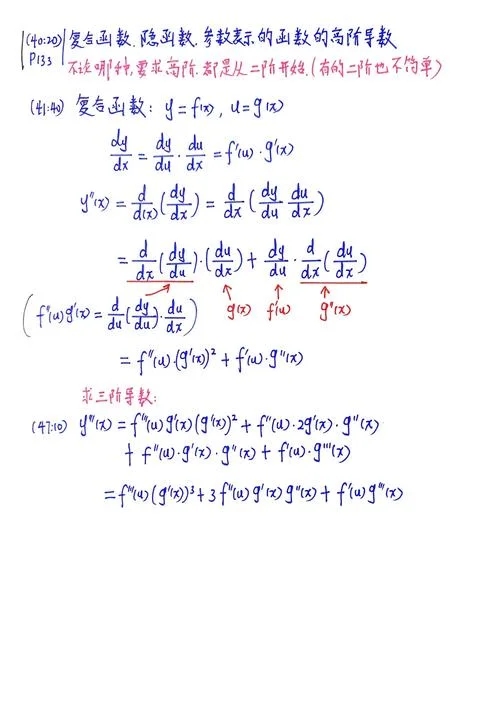 (40:20) 复合函数.隐函数.参数表示的函数的高阶导数
P133 不论哪种,要求高阶.都是从二阶开始.(有的二阶也不简单)
(41:40) 复合函数: y=f(x), u=g(x)
dy/dx = dy/du · du/dx = f'(u)·g'(x)
y''(x) = d/d(x) (dy/dx) = d/dx (dy/du du/dx)
= d/dx (dy/du)·(du/dx) + dy/du · d/dx (du/dx)
g(x) f'(u) g''(x)
(f''(u)g'(x) = d/du (dy/du)·du/dx)
= f''(u)·(g'(x))² + f'(u)·g''(x)
求三阶导数:
(47:10) y'''(x) = f'''(u)g'(x)(g'(x))² + f''(u)·2g'(x)·g''(x)
+ f''(u)·g'(x)·g''(x) + f'(u)·g'''(x)
= f'''(u)(g'(x))³ + 3f''(u)g'(x)g''(x) + f'(u)g'''(x)